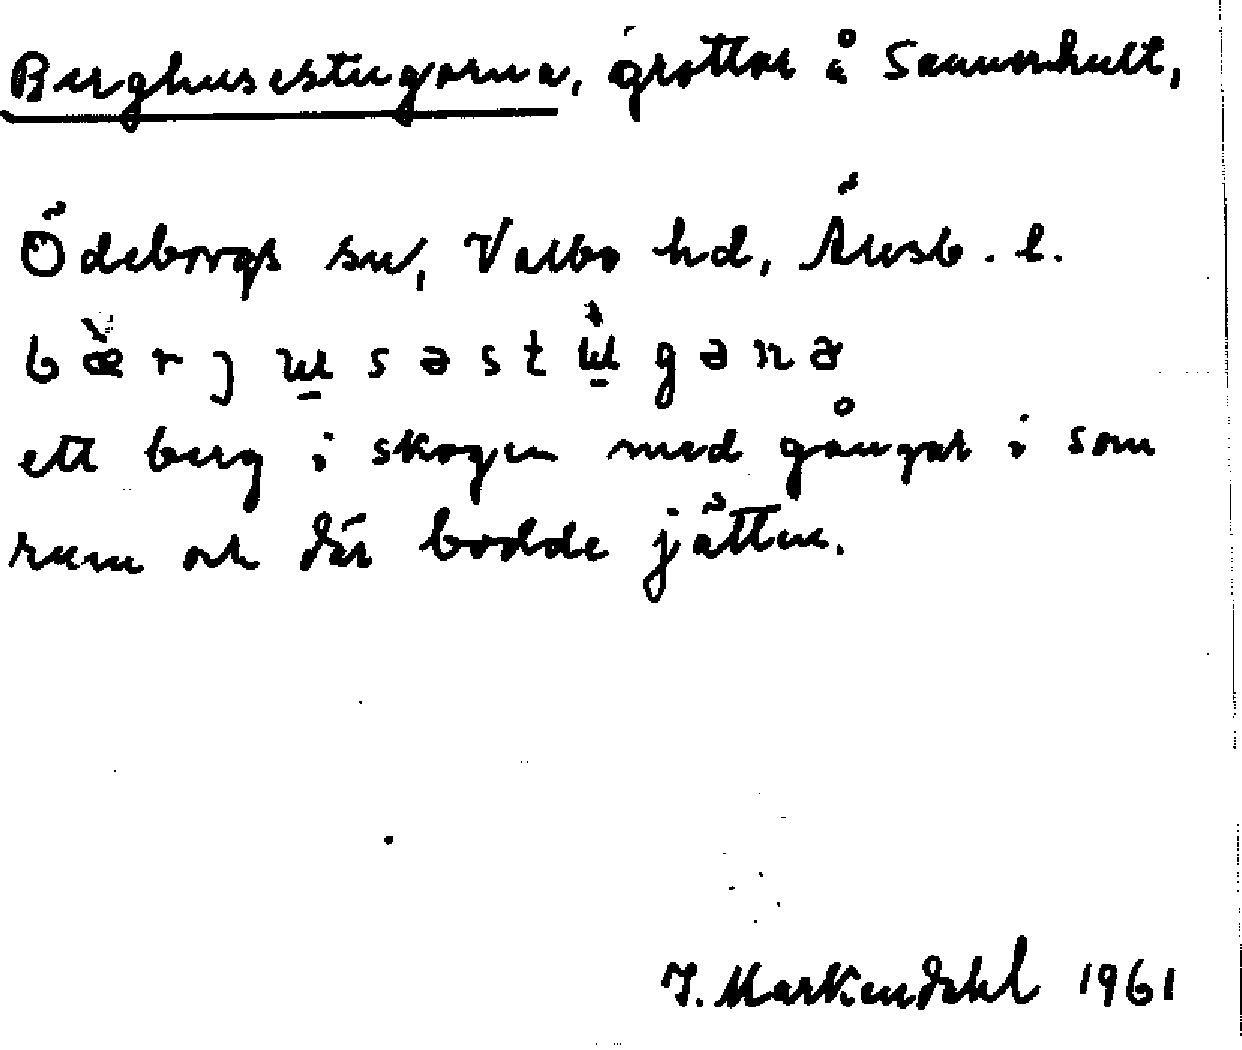 Berghusestugorna, grottor å Sannerhult,
Ödeborgs sn, Valbo hd, Älvsb. l.
bæ̀rjɯ̱səstɯ̱̀gəna
ett berg i skogen med gångar i som
rum och där bodde jätten.
J. Markendahl 1961